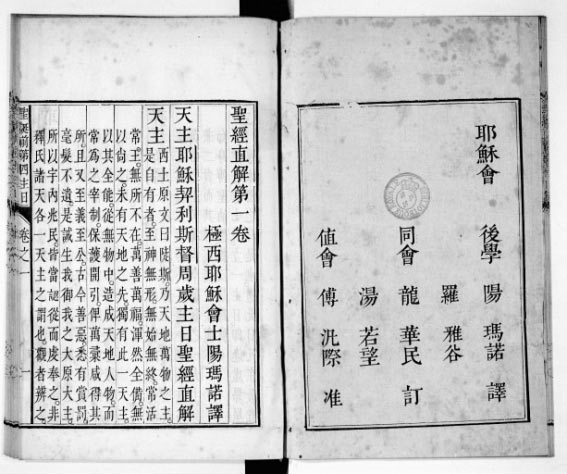 耶穌會 後學 陽瑪諾 譯
羅雅谷
同會 龍華民 訂
湯若望
值會 傅汎際 准
聖經直解第一卷
極西耶穌會士陽瑪諾譯
天主耶穌契利斯督周歲主日聖經直解
天主 西土原文曰陡斯乃天地萬物之主
是自有者至神無形無始無終常活
常王無所不在萬善萬福渾然全備無
以尚之未有天地之先獨有此一天主
以其全能從無物中造成天地人物而
常為之宰制保護開引俾萬彙咸得其
所且又至義至公古今善惡悉有賞罰
毫髮不遺是誠生我御我之大原大主
所以宇內兆民皆當認從而虔奉之非
釋氏諸天各一天主之謂也觀者辨之
聖誕前第四主日 卷之一 一